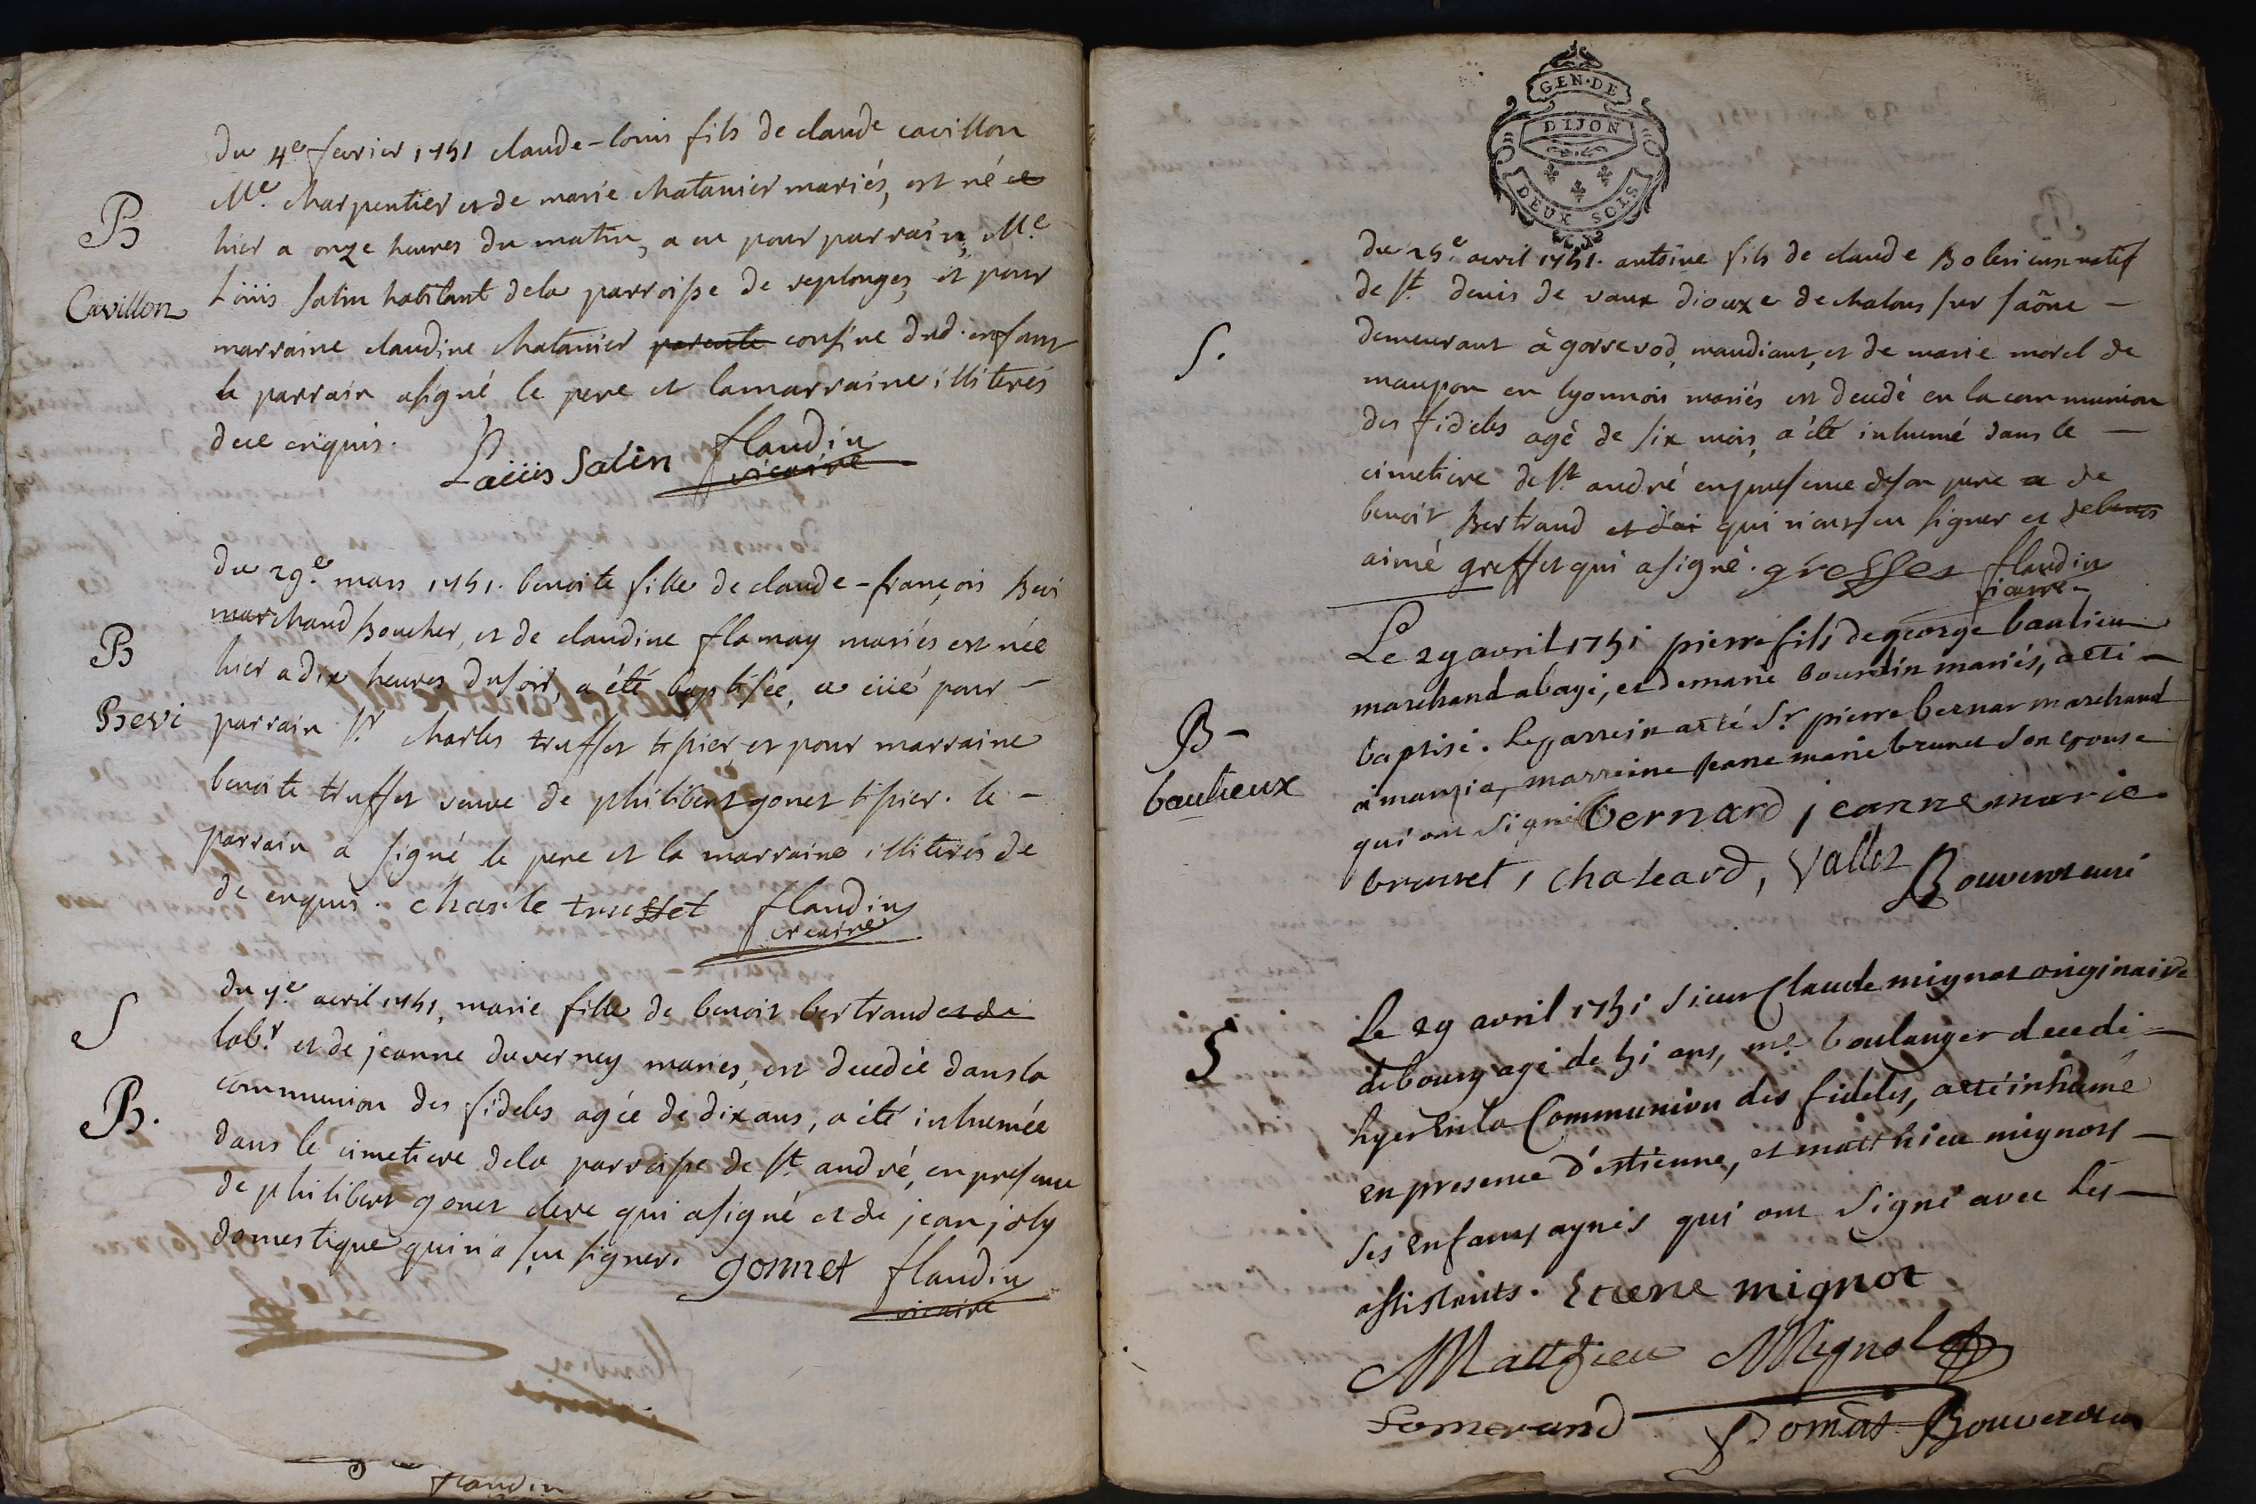 B
Cavillon
du 4e fevrier 1751 claude-louis fils de claude cavillon
Me. charpentier et de marie chatanier mariés, est né ce
hier a onze heures du matin, a eu pour parrain, Me
Loüis Salin habitant dela parroisse de replonges, et pour
marraine claudine chatanier parente cousine dud. enfant
le parrain asigné le pere et la marraine illiterés
dece enquis.
Loüis Salin flandin
vicaire
B
Bevi
du 29e. mars 1751. benoite fille de claude-françois Bevi
marchand Boucher, et de claudine flamay mariés est née
hier a dix heures dusoir, a été baptisée, a eüe pour
parrain Sr charles truffet tissier, et pour marraine
benoite truffet veuve de philibert gonet tissier. le
parrain a signé le pere et la marraine illiterés de
de enquis. charle truffet flandin
vicaire
S
B.
du 7e avril 1751, marie fille de benoit bertrand et de
labr. et de jeanne duverney mariés, est decedée dans la
communion des fideles agée de dix ans, a été inhumée
dans le cimetiere dela parroisse de st andré, en presence
de philibert gonet clerc qui asigné et de jean joly
domestique qui n'a sçu signer. gonnet flandin
vicaire
flandin
GEN·DE
DIJON
DEUX SOLS
S.
du 25e. avril 1751. antoine fils de claude natif
de st. denis de vaux dioceze de chalons sur saône
demeurant à gorrevod, mandiant, et de marie morel de
maupon en lyonnois mariés est decedé en la communion
des fideles agé de six mois, a été inhumé dans le
cimetiere de st. andré en presence deson pere et de
benoit Bertrand et qui n'ont sçu signer et
aimé greffet qui asigné. greffet flandin
vicaire
B
baulieux
Le 29 avril 1751 pierre fils de george baulieu
marchand abagé, et de marie bourdin mariés, a etté
baptisé. Le parrein a eté Sr. pierre bernar marchand
a manzia, marreine jeane marie brunet son epouse
qui ont signé bernard jeanne marie
brunet, chaleard, Vallet Bouvent curé
S
Le 29 avril 1751 Sieur Claude mignot originaire
de bourg agé de 51 ans, me. boulanger decedé
hyer en la Communion des fideles, a eté inhumé
en presence d'estienne, et matthieu mignots
ses enfans aynés qui ont signé avec les
assistants. Etiene mignot
Matthieu Mignot
Somerand Domat Bouvent curé